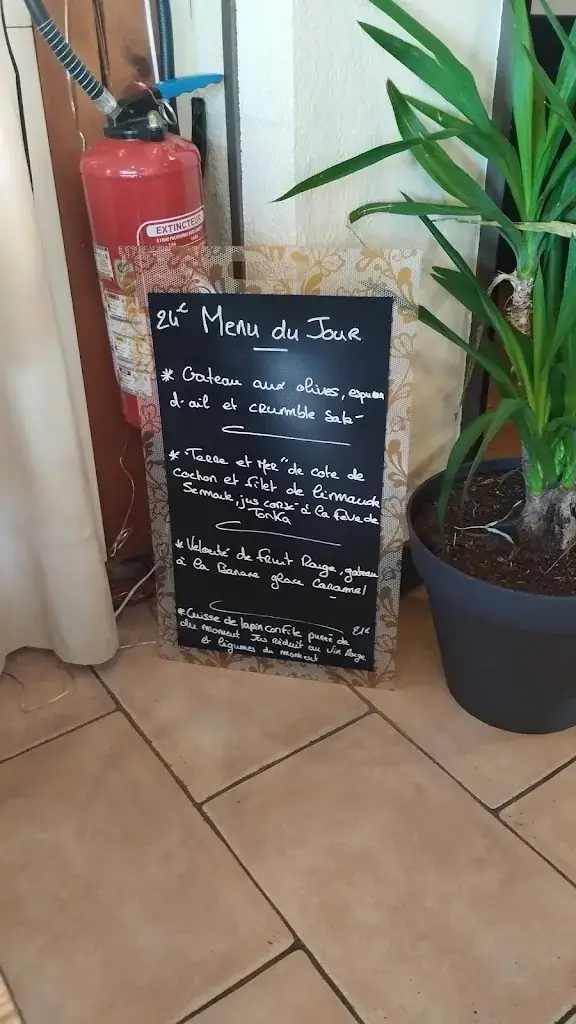 EXTINCTEUR
24€ Menu du Jour
* Gateau aux olives, espuma
d'ail et crumble Salé
* "Terre et Mer" de cote de
Cochon et filet de limande
Semoule, jus corsé à la fève de
Tonka
* Velouté de fruit Rouge, gateau
à la Banane glace Caramel
* Cuisse de lapin confite purée du 21€
du moment Jus réduit au vin Rouge
et légumes du moment